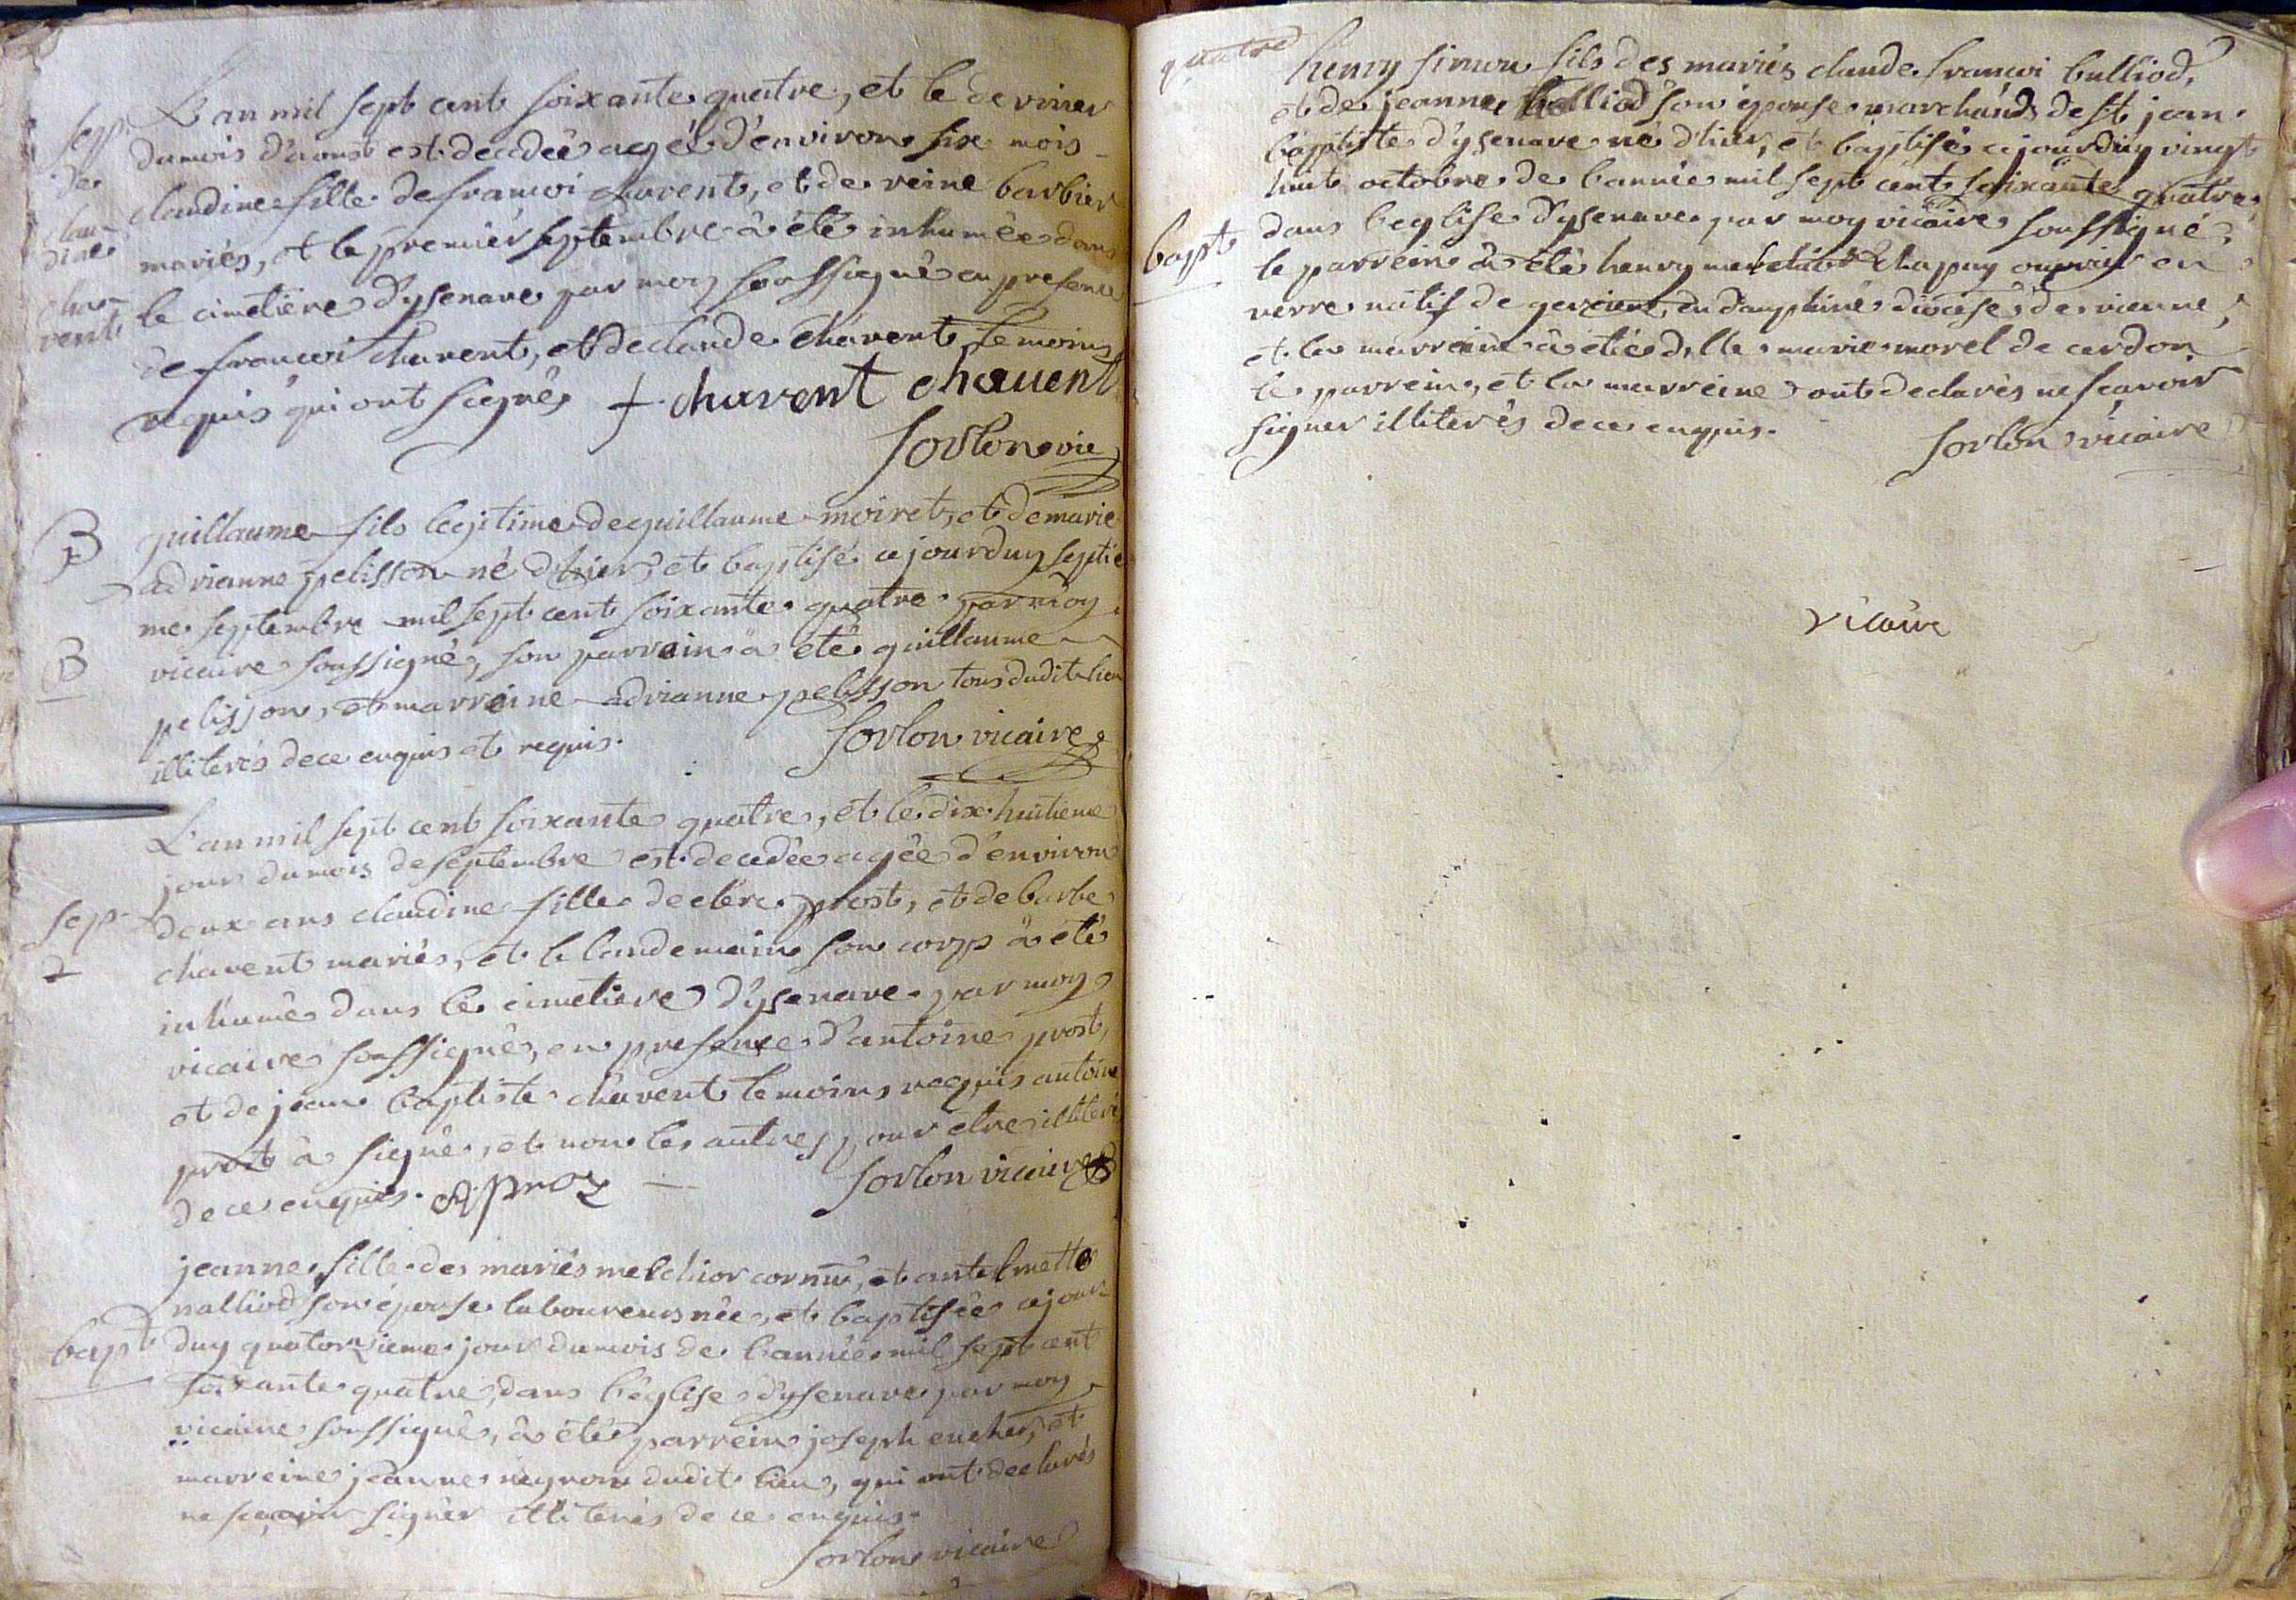 L'an mil sept cent soixante quatre, et le dernier
du mois d'aoust est decedée agée d'environ six mois
claudine fille de francoi chavent, et de reine barbier
mariés, et le premier septembre à été inhumée dans
le cimetière d'ysenave par moy soussigné en presence
de francoi chavent, et de claude chavent temoins
requis qui ont signés + chavent chavent
sorlon vic
sep.
de
clau-
dine
cha-
vent
B
guillaume fils legitime de guillaume moiret, et de marie
adrianne pelisson né d'hier, et baptisé ajourduy septie
me septembre mil sept cent soixante quatre par moy
vicaire soussigné, son parrain à été guillaume
B
pelisson, et marreine adrianne pelisson tous dudit lieu
illiterés de ce enquis et requis.
sorlon vicaire
L'an mil sept cent soixante quatre, et le dix huitieme
jour du mois de septembre est decedée agée d'environ
sep
deux ans claudine fille de clere prost, et de barbe
chavent mariés, et le landemain son corps à été
inhumé dans le cimetiere d'ysenave par moy
vicaire soussigné, en presence d'antoine prost,
et de jean baptiste chavent temoins requis antoine
prost à signé, et non les autres pour etre illiteré
de ce enquis. A proz
sorlon vicaire
jeanne fille des mariés melchior cornu, et antelmette
nalliod son épouse laboureurs née, et baptisée ajour
bapt
duy quatorzieme jour du mois de l'année mil sept cent
soixante quatre, dans l'église d'ysenave par moy
vicaire soussigné, à été parrein joseph et
marreine jeanne neyron dudit lieu, qui ont declarés
ne scavoir signer illiterés de ce enquis.
sorlon vicaire
quatre
henry simon fils des mariés claude francoi bulliod,
et de jeanne balliod son épouse marchands de st jean
baptiste d'ysenave né d'hier, et baptisé ajourduy vingt
huit octobre de l'année mil sept cent soixante quatre,
bapt
dans l'eglise d'ysenave par moy vicaire soussigné,
le parrein à été henry melchior chapuy ouvrier en
verre natif de en dauphiné diocèse de vienne,
et la marreine à étée dlle marie morel de cerdon
le parrein, et la marreine ont declarés ne scavoir
signer illiterés de ce enquis.
sorlon vicaire
vicaire